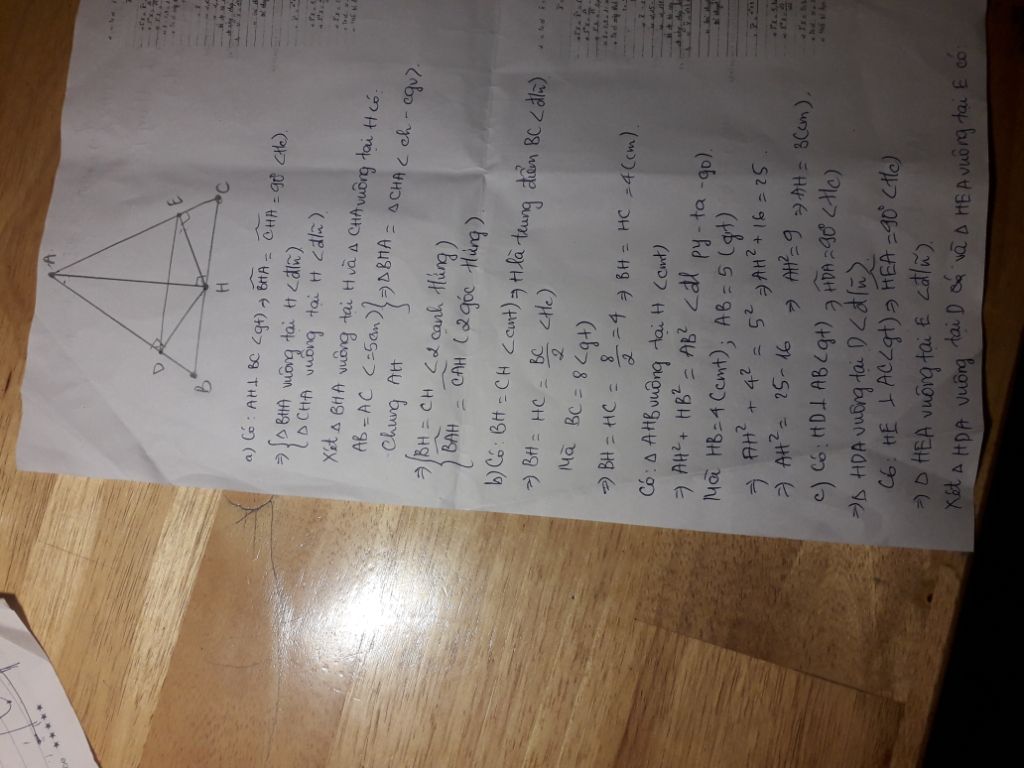 A
D
E
B
H
C
a) Có: AH⊥ BC <gt> ⇒ BHA = CHA = 90° <tc>.
⇒ { ΔBHA vuông tại H <đ/n>
{ ΔCHA vuông tại H <đ/n>.
Xét Δ BHA vuông tại H và Δ CHA vuông tại H có:
AB = AC <= 5cm>
- Chung AH } ⇒ ΔBHA = ΔCHA < ch - cgv>.
⇒ { BH = CH < 2 cạnh t/ứng>
{ BAH = CAH (2 góc t/ứng).
b) Có: BH = CH <cmt> ⇒ H là trung điểm BC <đ/n>
⇒ BH = HC = BC/2 <tc>
Mà BC = 8 <gt>
⇒ BH = HC = 8/2 = 4 ⇒ BH = HC = 4 (cm).
Có: Δ AHB vuông tại H <cmt>
⇒ AH² + HB² = AB² <đl py-ta-go>.
Mà HB = 4 (cmt); AB = 5 (gt)
⇒ AH² + 4² = 5² ⇒ AH² + 16 = 25.
⇒ AH² = 25 - 16 ⇒ AH² = 9 ⇒ AH = 3(cm).
c) Có: HD⊥ AB <gt> ⇒ HDA = 90° <tc>
⇒ Δ HDA vuông tại D <đ/n>
Có: HE ⊥ AC <gt> ⇒ HEA = 90° <tc>
⇒ Δ HEA vuông tại E <đ/n>.
Xét Δ HDA vuông tại D và Δ HEA vuông tại E có: